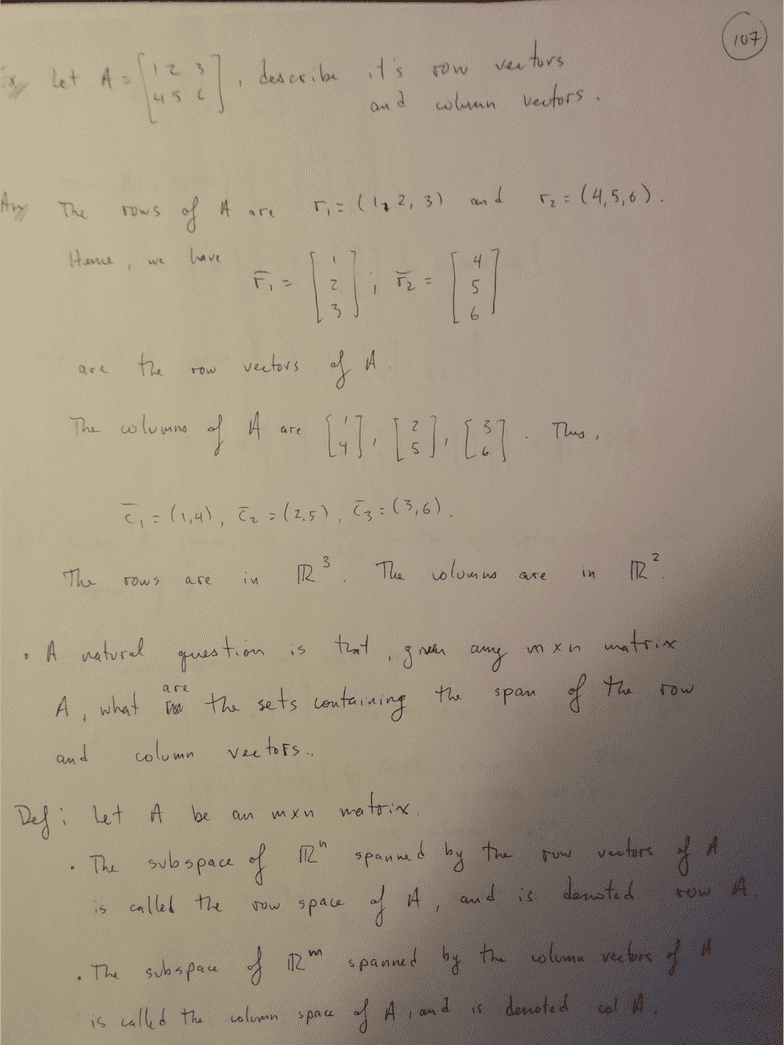 107
Ex Let A = [1 2 3; 4 5 6], describe it's row vectors
and column vectors.
Ans The rows of A are r₁ = (1, 2, 3) and r₂ = (4,5,6).
Hence, we have r̄₁ = [1; 2; 3]; r̄₂ = [4; 5; 6]
are the row vectors of A.
The columns of A are [1; 4], [2; 5], [3; 6]. Thus,
c̄₁ = (1,4), c̄₂ = (2,5), c̄₃ = (3,6).
The rows are in ℝ³. The columns are in ℝ².
• A natural question is that, given any m×n matrix
A, what are the sets containing the span of the row
and column vectors..
Def: Let A be an m×n matrix.
• The subspace of ℝⁿ spanned by the row vectors of A
is called the row space of A, and is denoted row A.
• The subspace of ℝᵐ spanned by the column vectors of A
is called the column space of A, and is denoted col A.